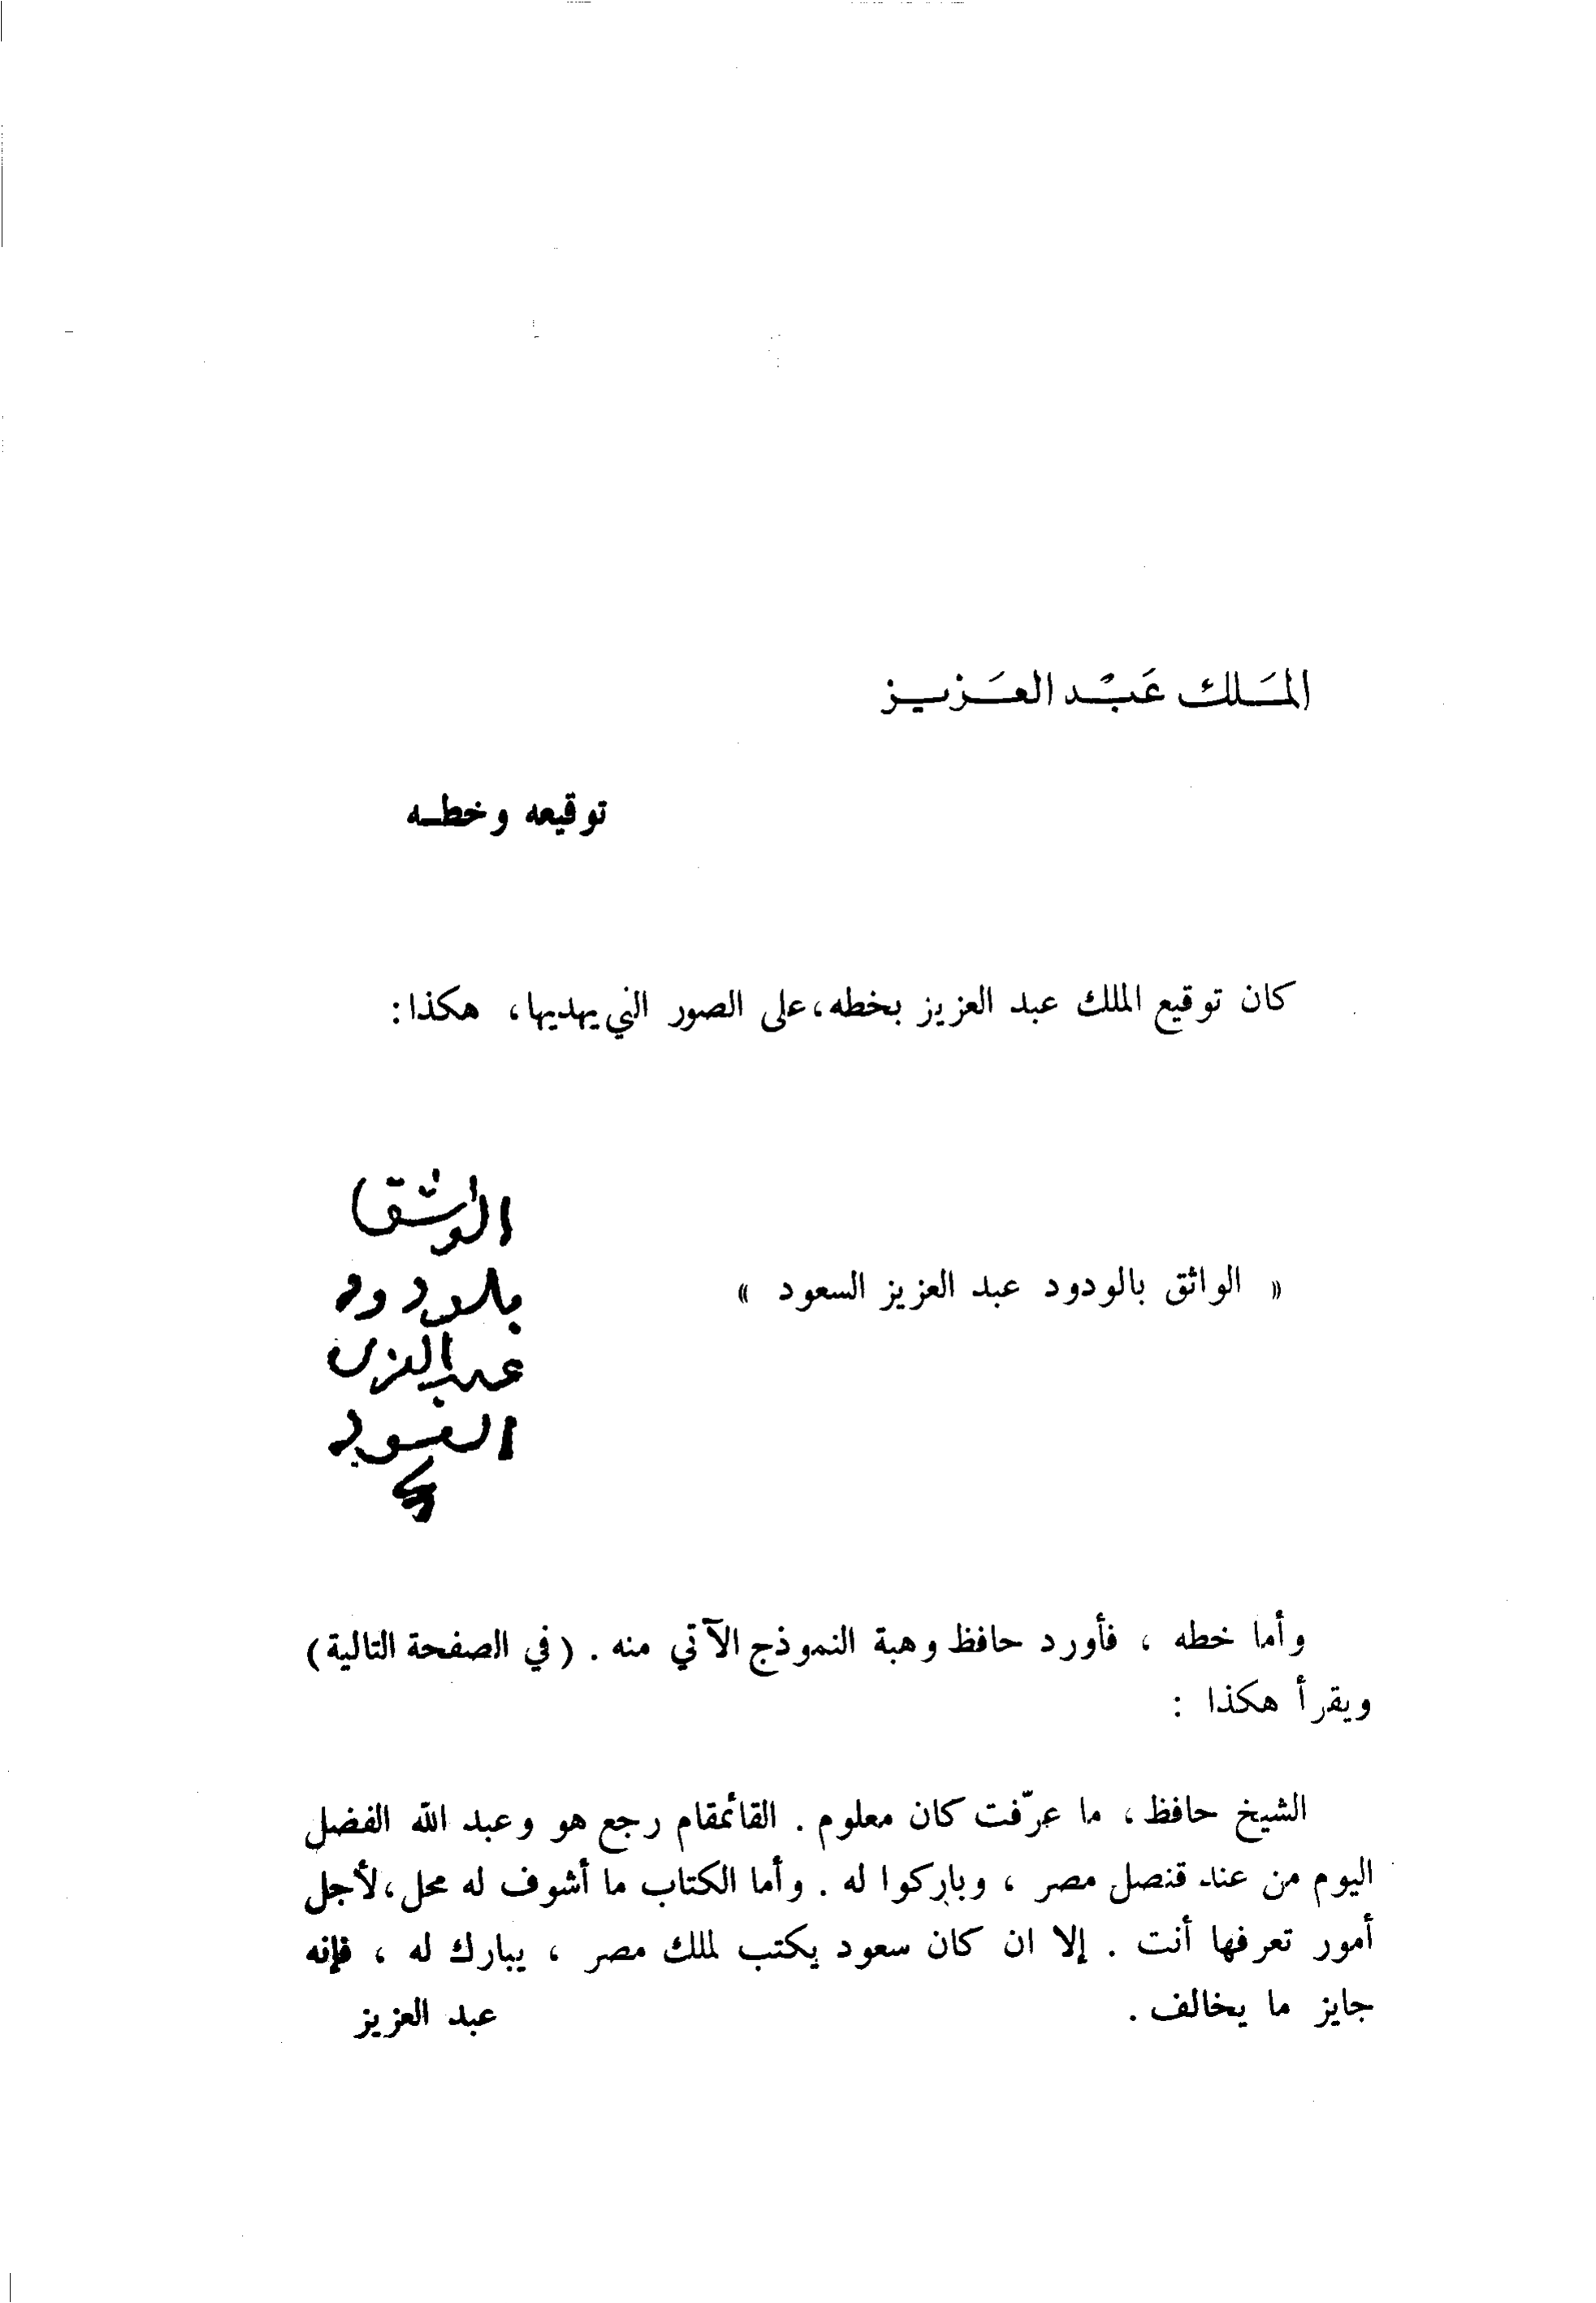 الملك عبد العزيز
توقيعه وخطه
كان توقيع الملك عبد العزيز بخطه، على الصور التي يهديها، هكذا:
« الواثق بالودود عبد العزيز السعود »
الواثق
بالودود
عبدالعزيز
السعود
وأما خطه ، فأورد حافظ وهبة النموذج الآتي منه . (في الصفحة التالية)
ويقرأ هكذا :
الشيخ حافظ ، ما عرّفت كان معلوم . القائمقام رجع هو وعبد الله الفضل
اليوم من عند قنصل مصر ، وباركوا له . وأما الكتاب ما أشوف له محل، لأجل
أمور تعرفها أنت . إلا ان كان سعود يكتب لملك مصر ، يبارك له ، فإنه
جايز ما يخالف .
عبد العزيز